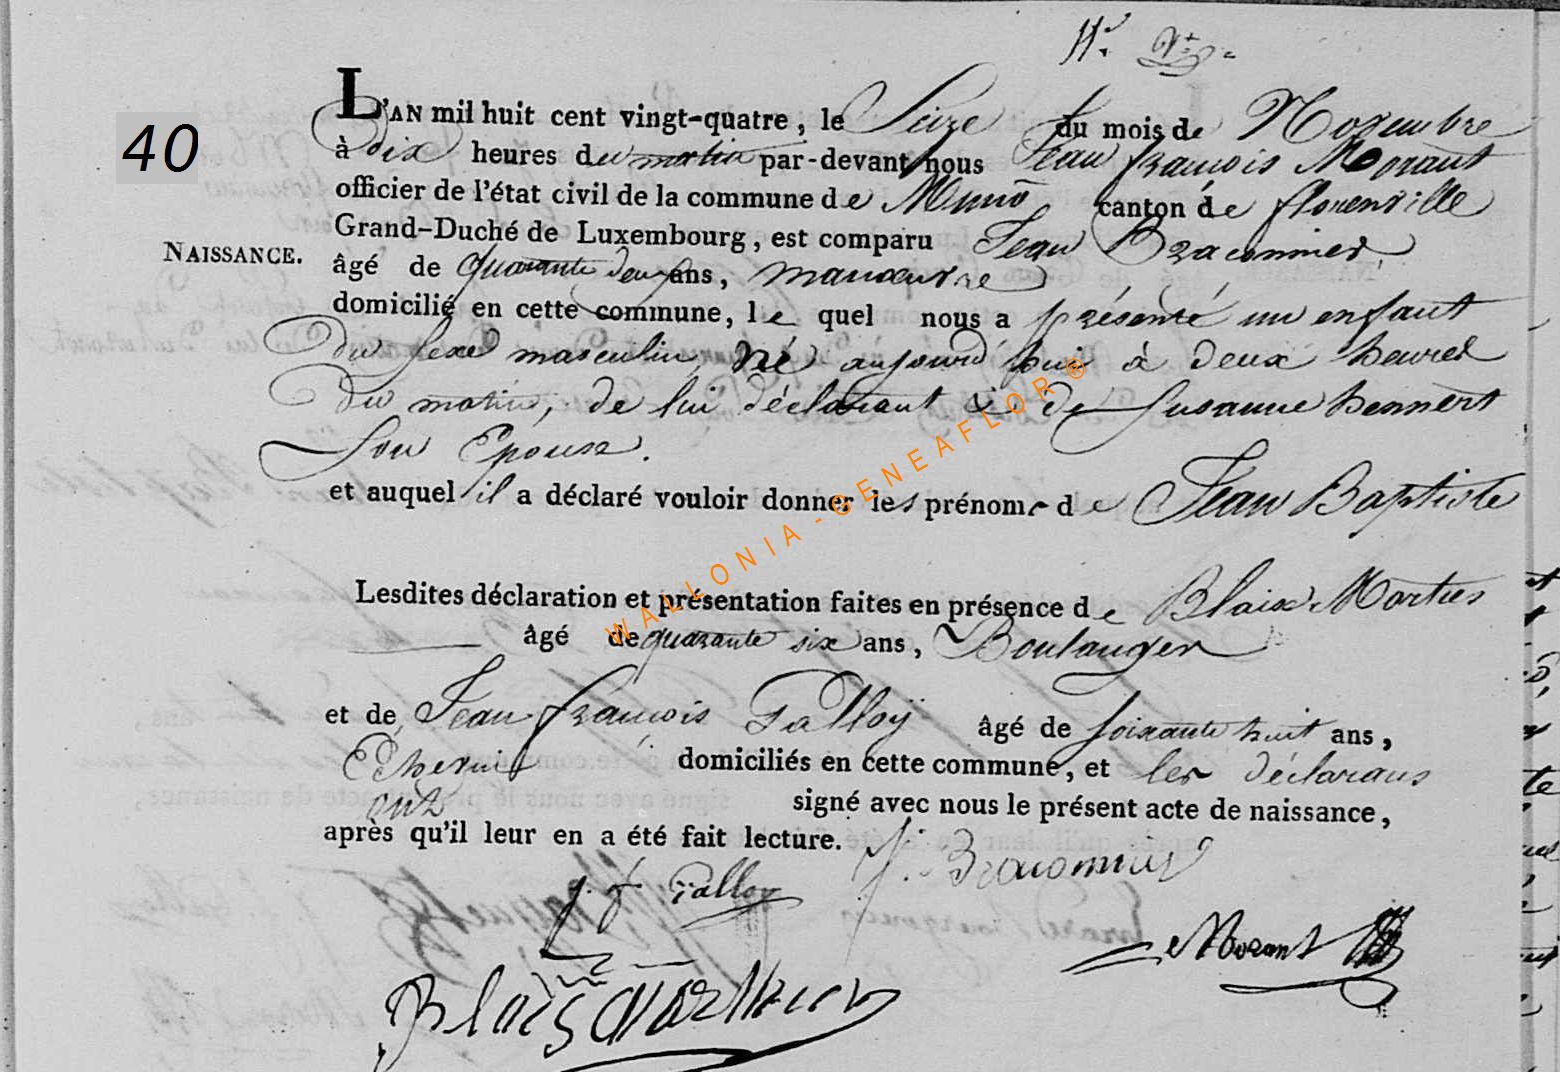 40
L'AN mil huit cent vingt-quatre, le Seize du mois de Novembre
à dix heures du matin par-devant nous Jean françois Morant
officier de l'état civil de la commune de Muno canton de florenville
NAISSANCE.
Grand-Duché de Luxembourg, est comparu Jean Braconnier
âgé de quarante deux ans, manœuvre
domicilié en cette commune, le quel nous a présenté un enfant
du sexe masculin, né aujourd'hui à deux heures
du matin, de lui déclarant & de Susanne hennert
Son Epouse.
et auquel il a déclaré vouloir donner les prénoms de Jean Baptiste
Lesdites déclaration et présentation faites en présence de Blaix
âgé de quarante six ans, Boulanger
et de Jean françois Palloÿ âgé de soixante huit ans,
domiciliés en cette commune, et les déclarans
ont signé avec nous le présent acte de naissance,
après qu'il leur en a été fait lecture.
J. Braconnier
j. f Palloy
Morant
Blais
WALLONIA-GENEAFLOR®